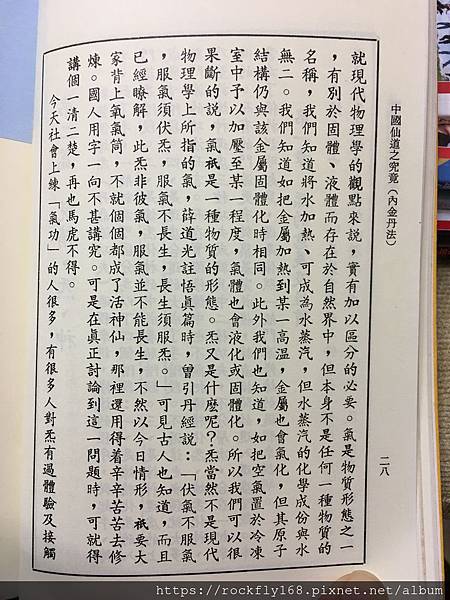 中國仙道之究竟（內金丹法）
二八
就現代物理學的觀點來說，實有加以區分的必要。氣是物質形態之一
，有別於固體、液體而存在於自然界中，但本身不是任何一種物質的
名稱，我們知道將水加熱、可成為水蒸汽，但水蒸汽的化學成份與水
無二。我們知道如把金屬加熱到某一高溫，金屬也會氣化，但其原子
結構仍與該金屬固體化時相同。此外我們也知道，如把空氣置於冷凍
室中予以加壓至某一程度，氣體也會液化或固體化。所以我們可以很
果斷的說，氣祇是一種物質的形態。炁又是什麼呢？炁當然不是現代
物理學上所指的氣，薛道光註悟眞篇時，曾引丹經說：「伏氣不服氣
，服氣須伏炁，服氣不長生，長生須服炁。」可見古人也知道，而且
已經瞭解，此炁非彼氣，服氣並不能長生，不然以今日情形，祇要大
家背上氧氣筒，不就個個都成了活神仙，那裡還用得着辛辛苦苦去修
煉。國人用字一向不甚講究。可是在眞正討論到這一問題時，可就得
講個一清二楚，再也馬虎不得。
今天社會上練「氣功」的人很多，有很多人對炁有過體驗及接觸
https://rockfly168.pixnet.net/album